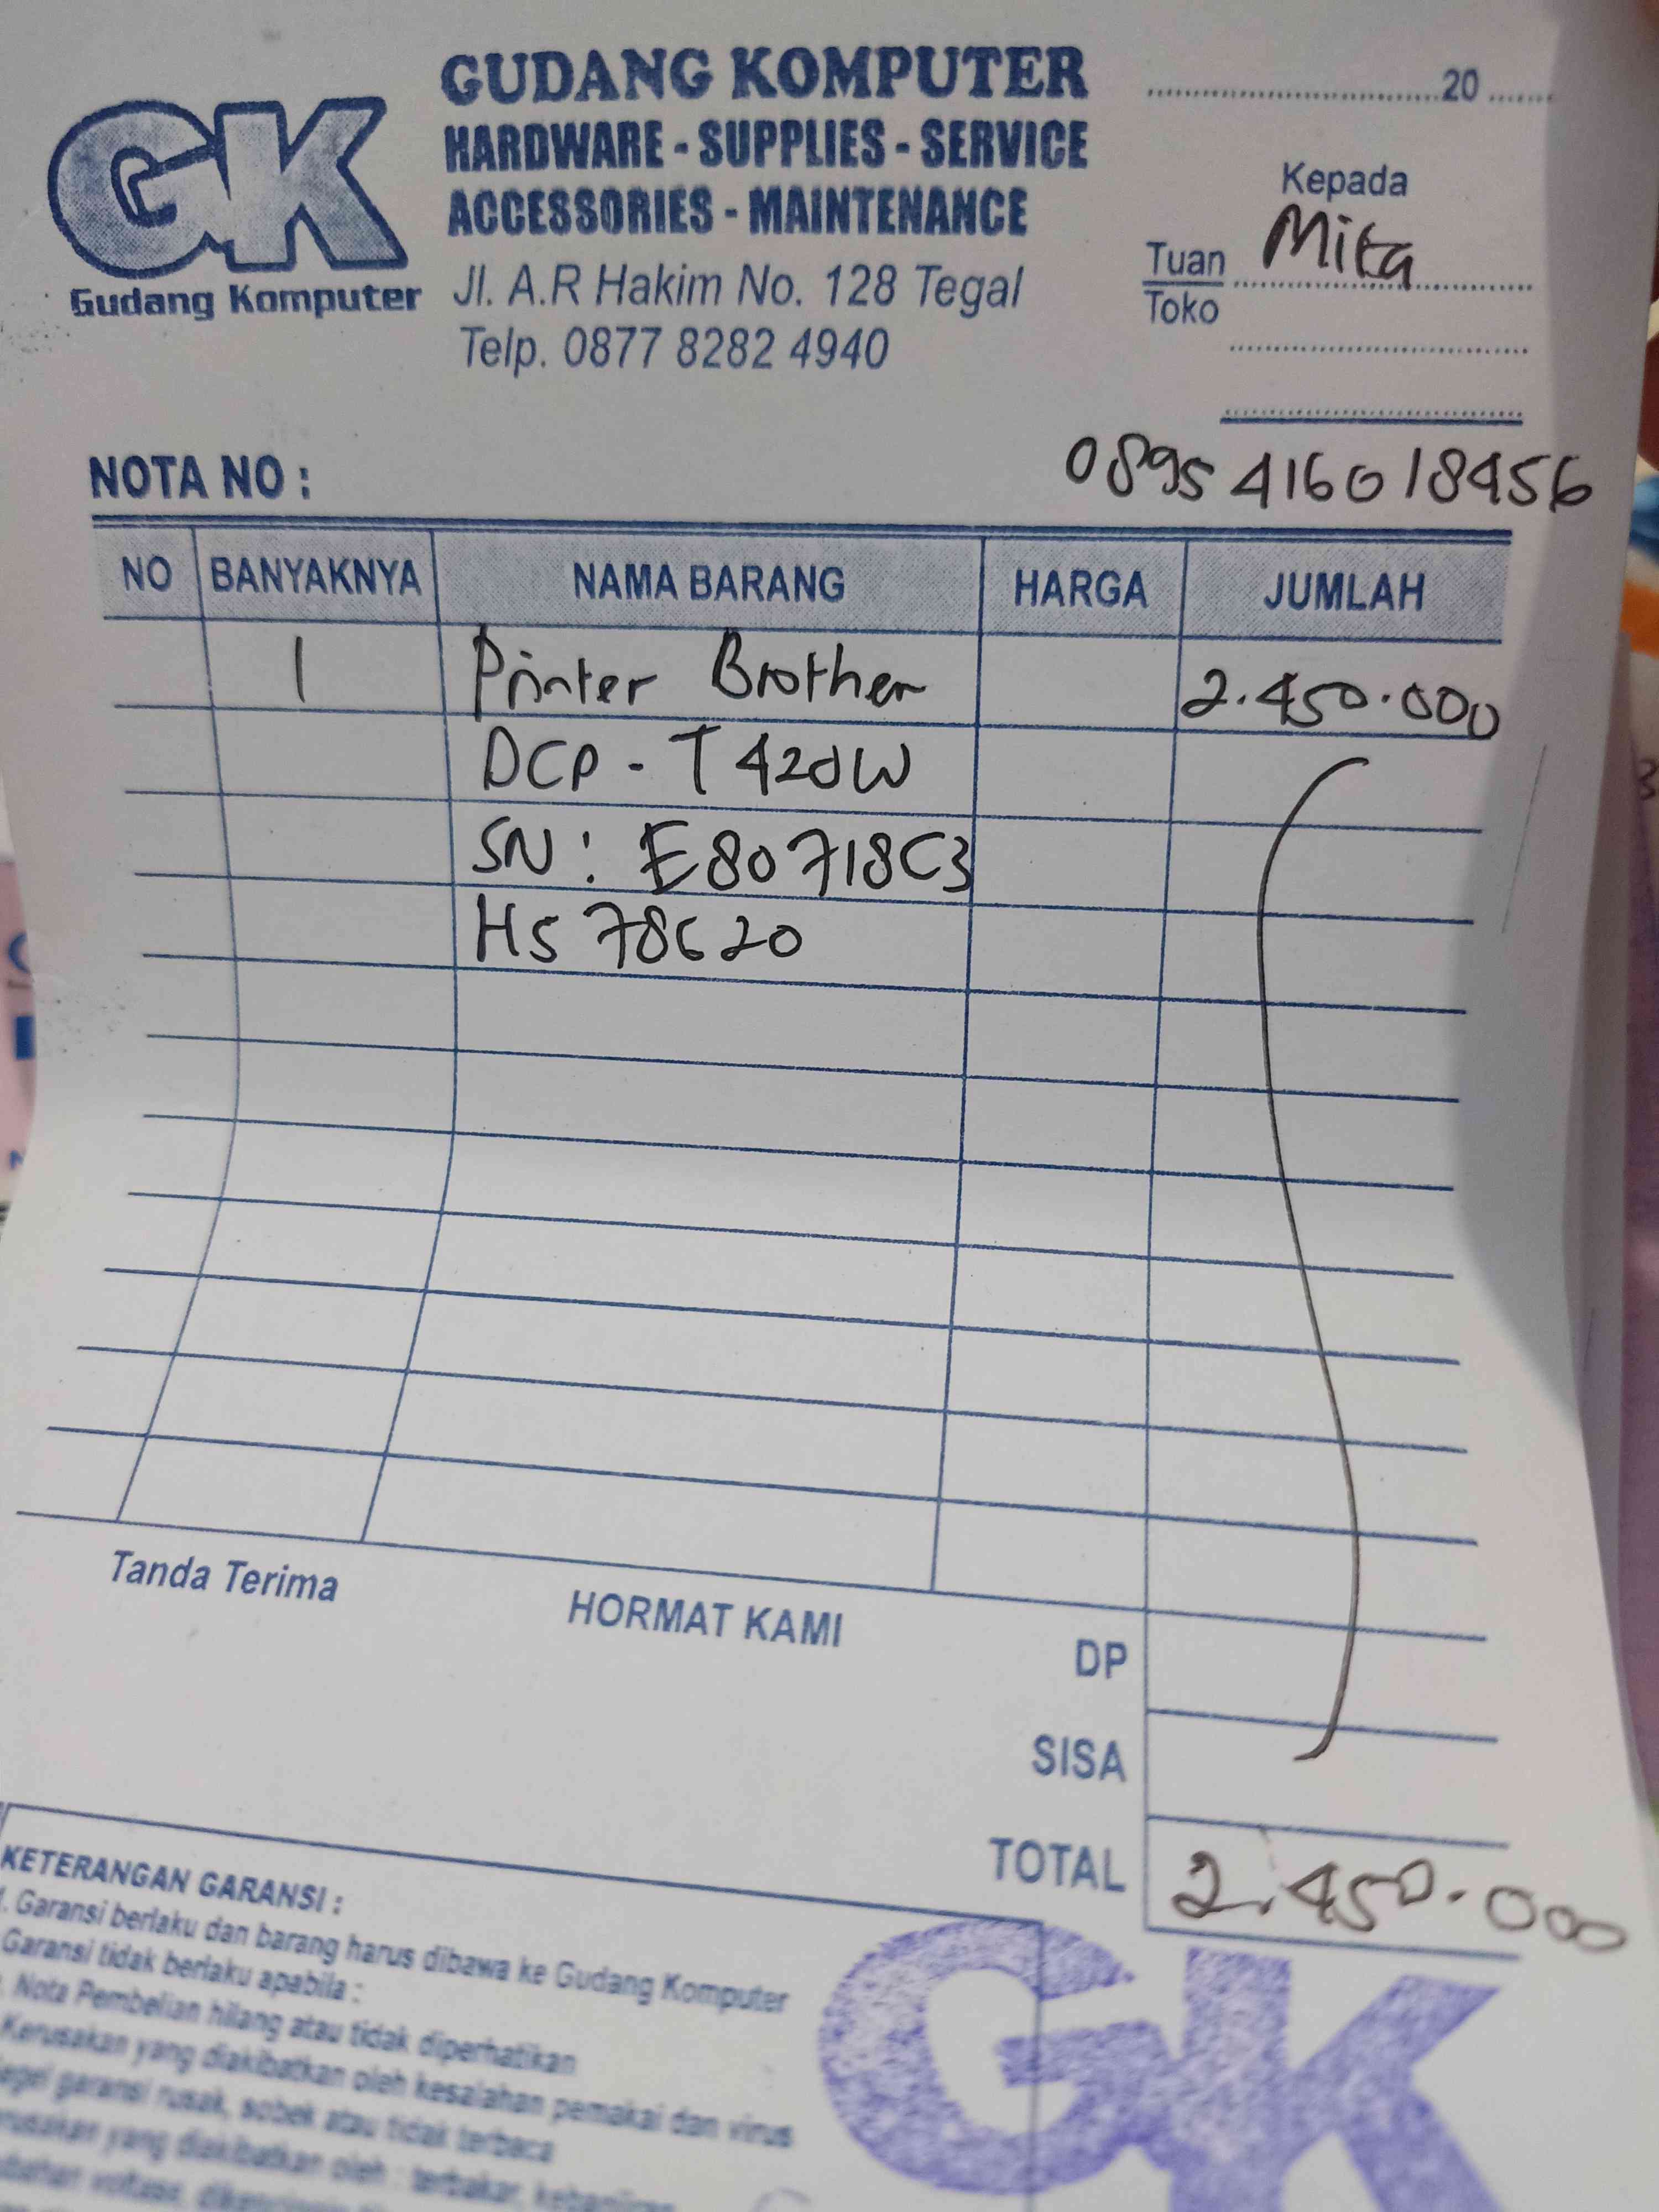 GK
Gudang Komputer
GUDANG KOMPUTER
HARDWARE - SUPPLIES - SERVICE
ACCESSORIES - MAINTENANCE
Jl. A.R Hakim No. 128 Tegal
Telp. 0877 8282 4940
....................20.......
Kepada
Tuan Mita
Toko
NOTA NO :
0895 4160 18456
NO BANYAKNYA NAMA BARANG HARGA JUMLAH
1 Printer Brother 2.450.000
DCP - T420W
SN : E80718C3
H578620
Tanda Terima
HORMAT KAMI
DP
SISA
TOTAL 2.450.000
KETERANGAN GARANSI :
1. Garansi berlaku dan barang harus dibawa ke Gudang Komputer
Garansi tidak berlaku apabila :
Nota Pembelian hilang atau tidak diperhatikan
Kerusakan yang diakibatkan oleh kesalahan pemakai dan virus
segel garansi rusak, sobek atau tidak terbaca
yang diakibatkan oleh : terbakar, kebanjiran
GK